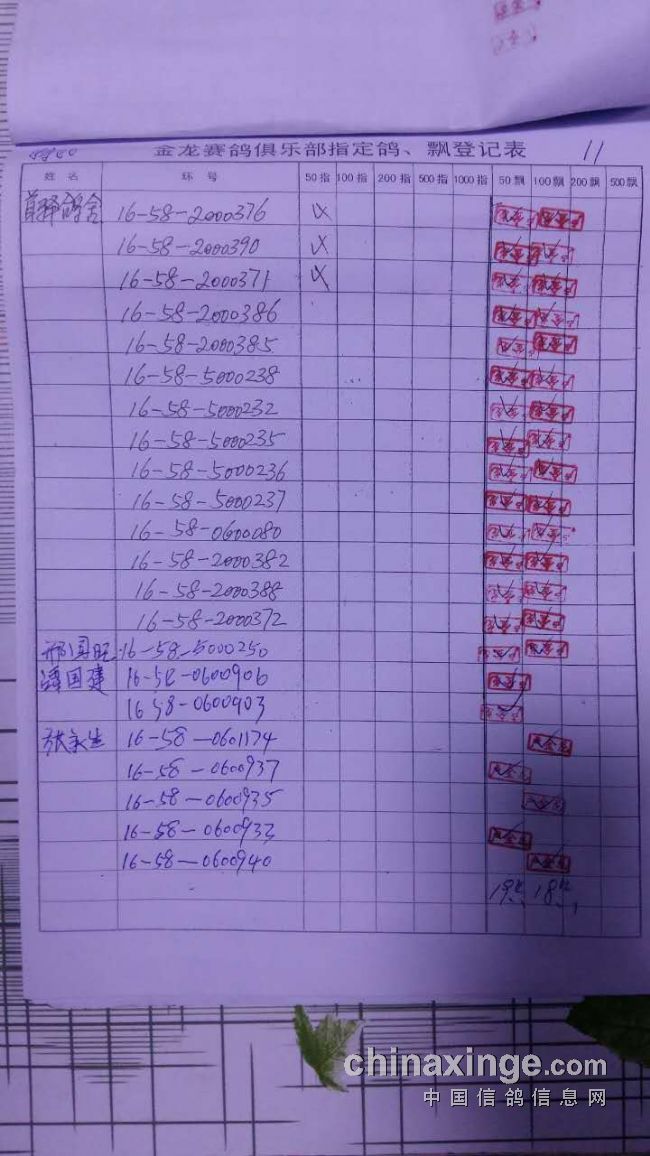 金龙赛鸽俱乐部指定鸽、飘登记表 11
姓 名 环 号 50指 100指 200指 500指 1000指 50飘 100飘 200飘 500飘
鸽舍 16-58-2000376
16-58-2000390
16-58-2000371
16-58-2000386
16-58-2000385
16-58-5000238
16-58-5000232
16-58-5000235
16-58-5000236
16-58-5000237
16-58-0600080
16-58-2000382
16-58-2000388
16-58-2000372
16-58-5000250
谭国建 16-58-0600906
16 58-0600903
张永生 16-58-0601174
16-58-0600937
16-58-0600935
16-58-0600933
16-58-0600940
chinaxinge.com
中国信鸽信息网